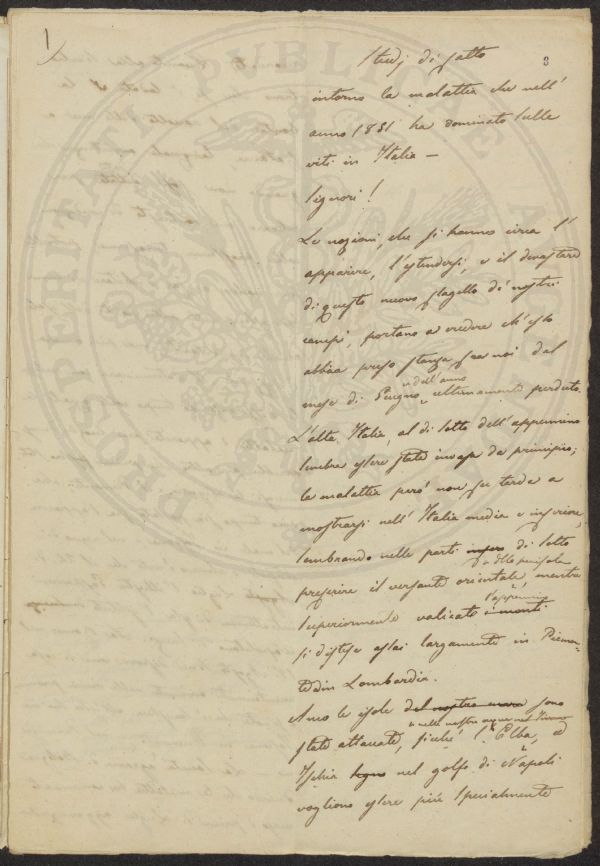 1
8
Studj di fatto
intorno la malattia che nell'
anno 1851 ha dominato sulle
viti in Italia —
Signori!
Le nozioni, che si hanno circa l'
apparire, l'estendersi, e il devastare
di questo nuovo flagello de' nostri
campi, portano a credere ch'esso
abbia preso stanza fra noi dal
mese di Giugno dell'anno ultimamente perduto.
L'alta Italia, al di sotto dell'appennino
sembra essere stata invasa da principio;
la malattia però non fu tarda a
mostrarsi nell'Italia media e inferiore,
sembrando nelle parti infere di sotto
della penisola
preferire il versante orientale, mentre
l'appennino
superiormente valicato i monti
si distese assai largamente in Piemon-
te ed in Lombardia.
Anco le isole del nostro mare sono
nelle nostre acque nel Tirreno
state attaccate, sicché l'Elba, ed
Ischia nel golfo di Napoli
vogliono essere più specialmente
PROSPERITATI PUBLICAE